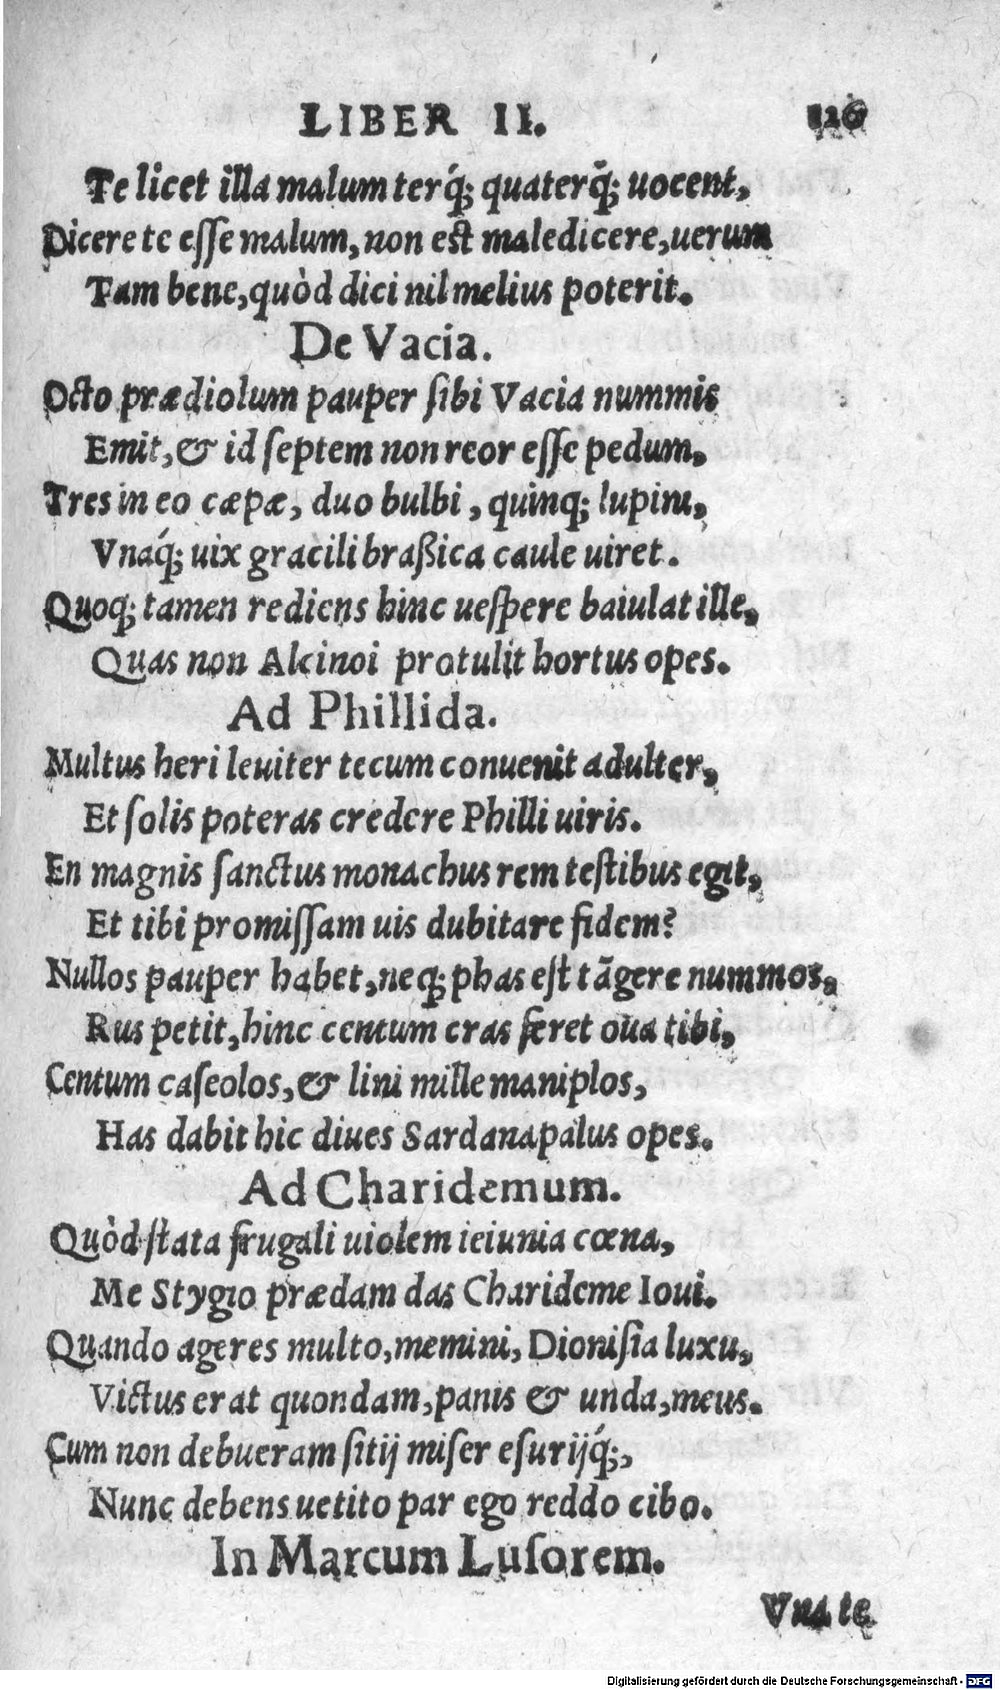 LIBER II. 126
Te licet illa malum terq́; quaterq́; uocent,
Dicere te eſſe malum, non est maledicere, uerum
Tam bene, quòd dici nil melius poterit.
De Vacia.
Octo prædiolum pauper ſibi Vacia nummis
Emit, & id ſeptem non reor eſſe pedum,
Tres in eo cæpæ, duo bulbi, quinq; lupini,
Vnaq́; uix gracili braßica caule uiret.
Quoq; tamen rediens hinc ueſpere baiulat ille,
Quas non Alcinoi protulit hortus opes.
Ad Phillida.
Multus heri leuiter tecum conuenit adulter,
Et ſolis poteras credere Philli uiris.
En magnis ſanctus monachus rem teſtibus egit,
Et tibi promiſſam uis dubitare fidem?
Nullos pauper habet, neq; phas eſt tãgere nummos,
Rus petit, hinc centum cras feret oua tibi,
Centum caſeolos, & lini mille maniplos,
Has dabit hic diues Sardanapalus opes.
Ad Charidemum.
Quòd ſtata frugali uiolem ieiunia cœna,
Me Stygio prædam das Charideme Ioui.
Quando ageres multo, memini, Dioniſia luxu,
Victus erat quondam, panis & unda, meus.
Cum non debueram ſitij miſer eſurijq́;,
Nunc debens uetito par ego reddo cibo.
In Marcum Luſorem.
Vna te
Digitalisierung gefördert durch die Deutsche Forschungsgemeinschaft - DFG